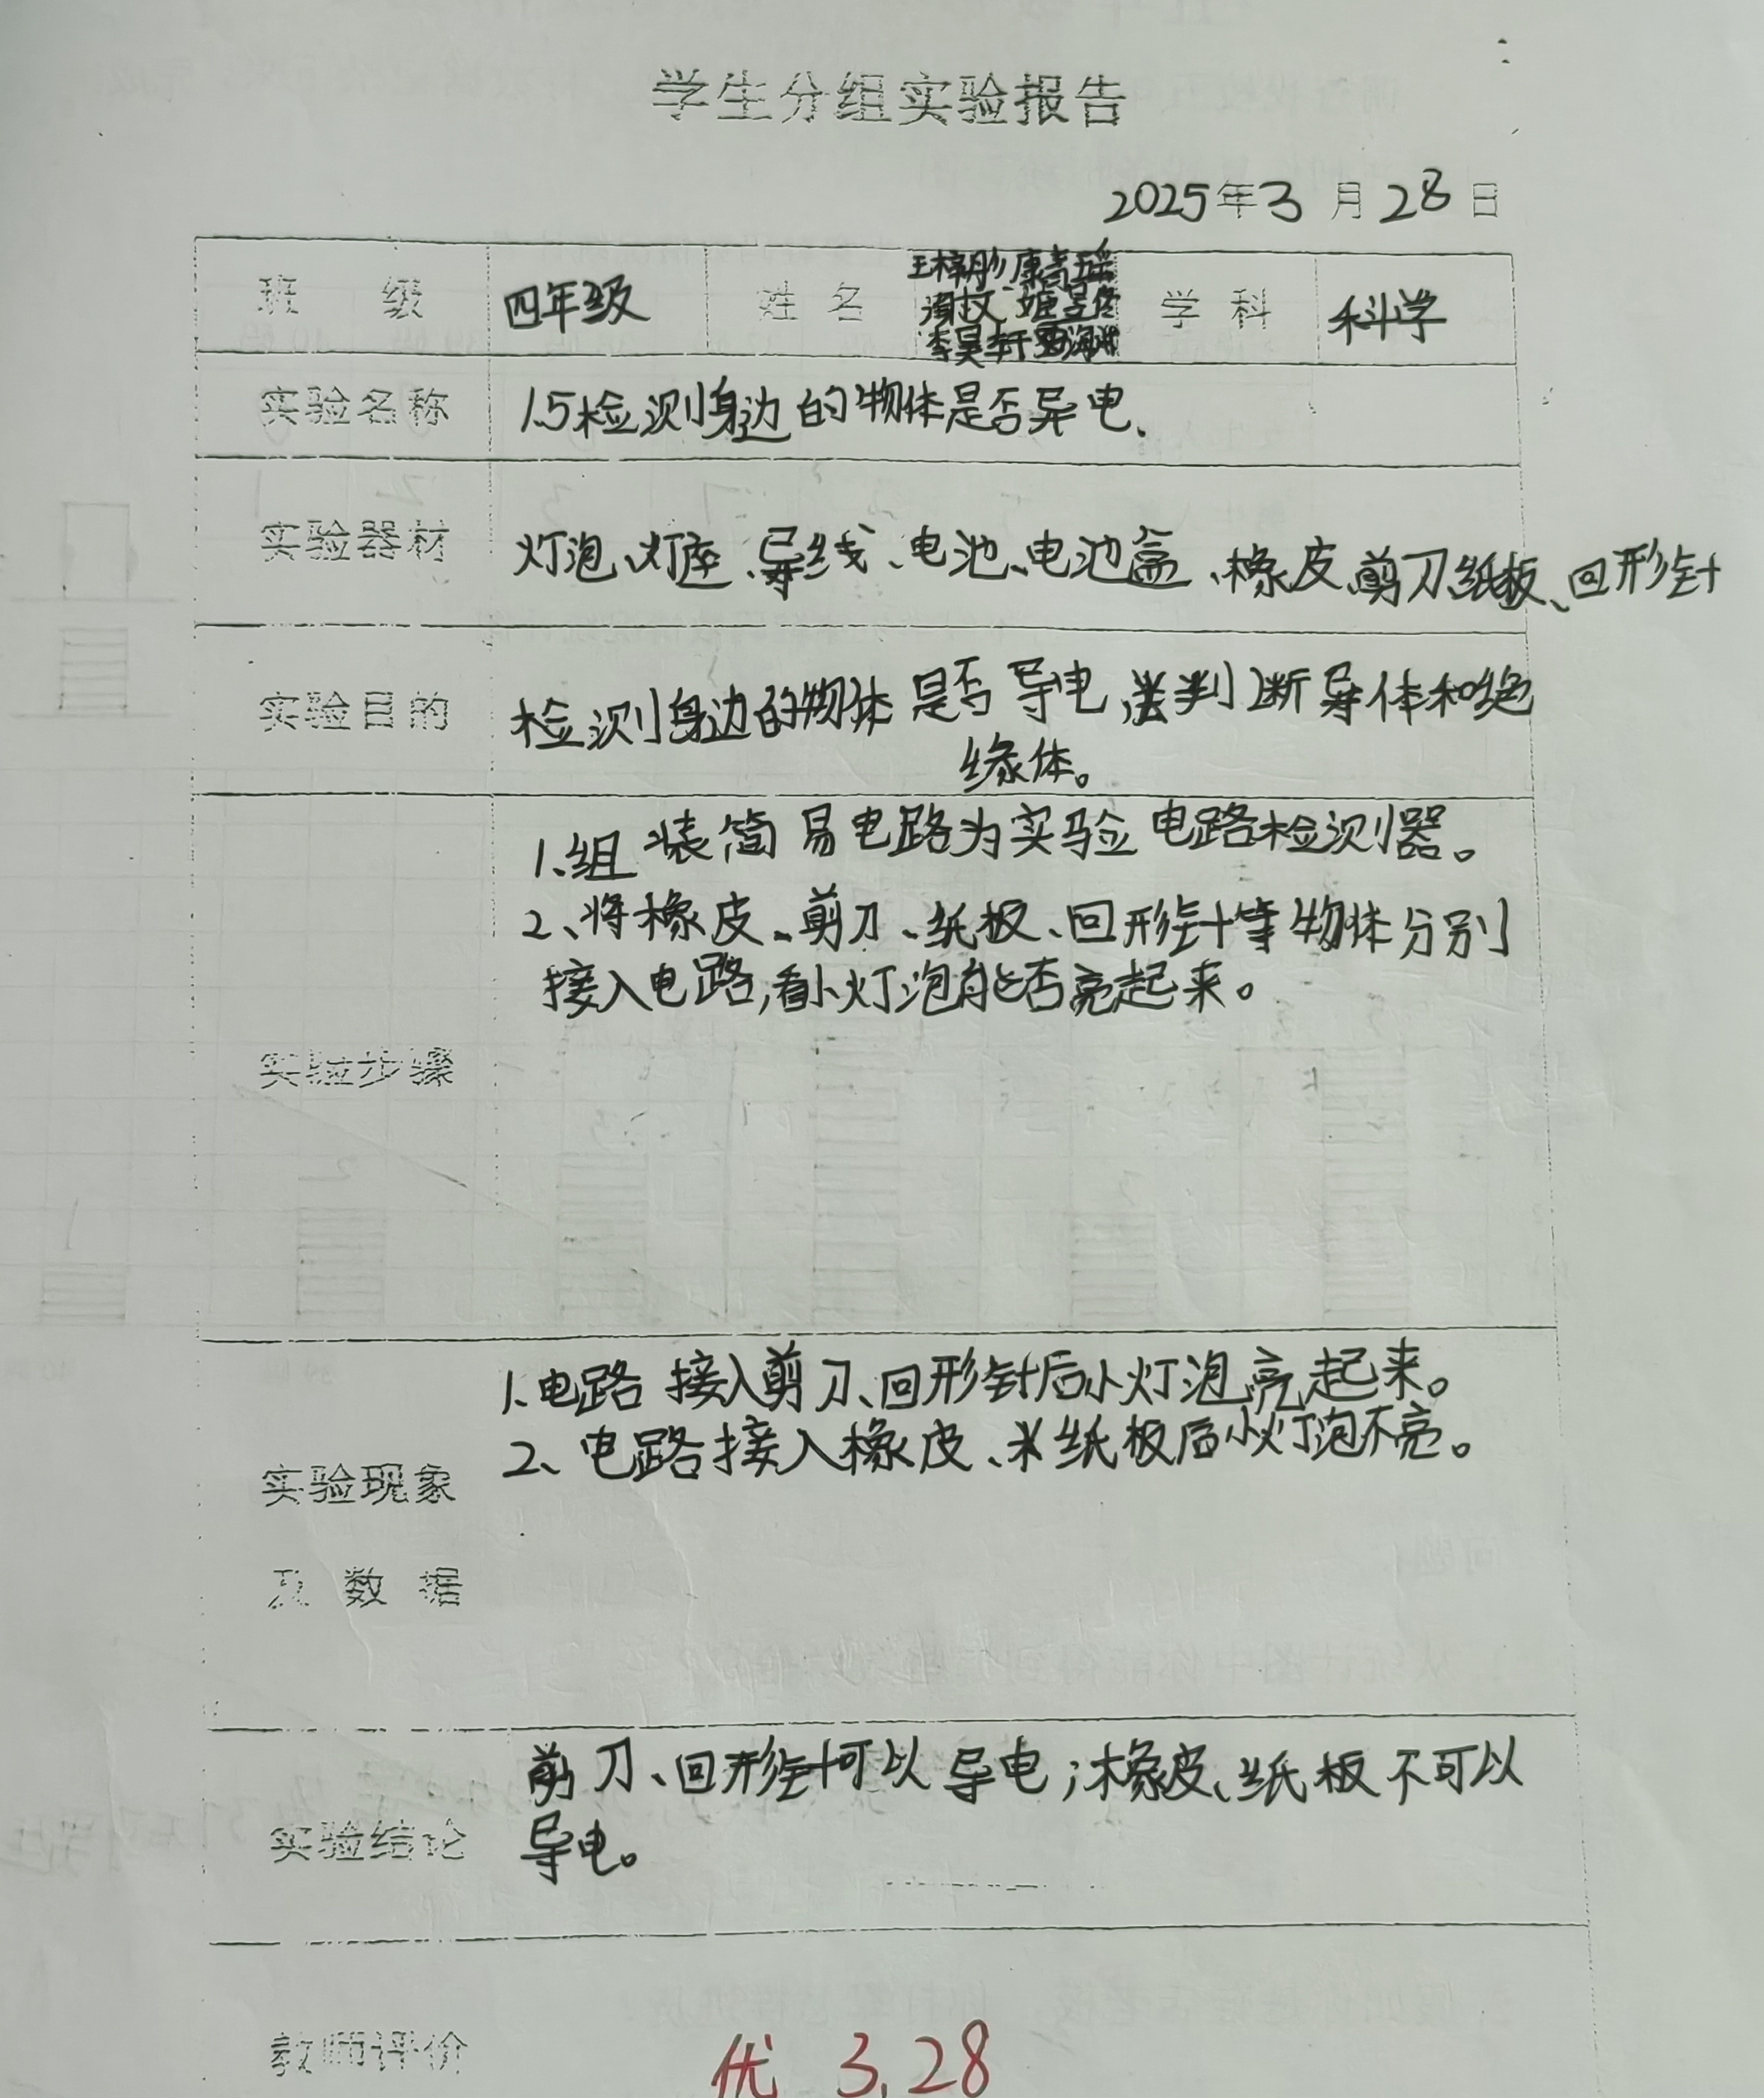 学生分组实验报告
2025年3月28日
班级 四年级 姓名 学科 科学
李昊轩
实验名称 1.5检测身边的物体是否导电.
实验器材 灯泡、灯座、导线、电池、电池盒、橡皮、剪刀、纸板、回形针
实验目的 检测身边的物体是否导电,判断导体和绝
缘体。
1、组装简易电路为实验电路检测器。
2、将橡皮、剪刀、纸板、回形针等物体分别
接入电路,看小灯泡能否亮起来。
实验步骤
1、电路接入剪刀、回形针后小灯泡亮起来。
2、电路接入橡皮、纸板后小灯泡不亮。
实验现象
及数据
剪刀、回形针可以导电;橡皮、纸板不可以
实验结论 导电。
教师评价 优 3.28